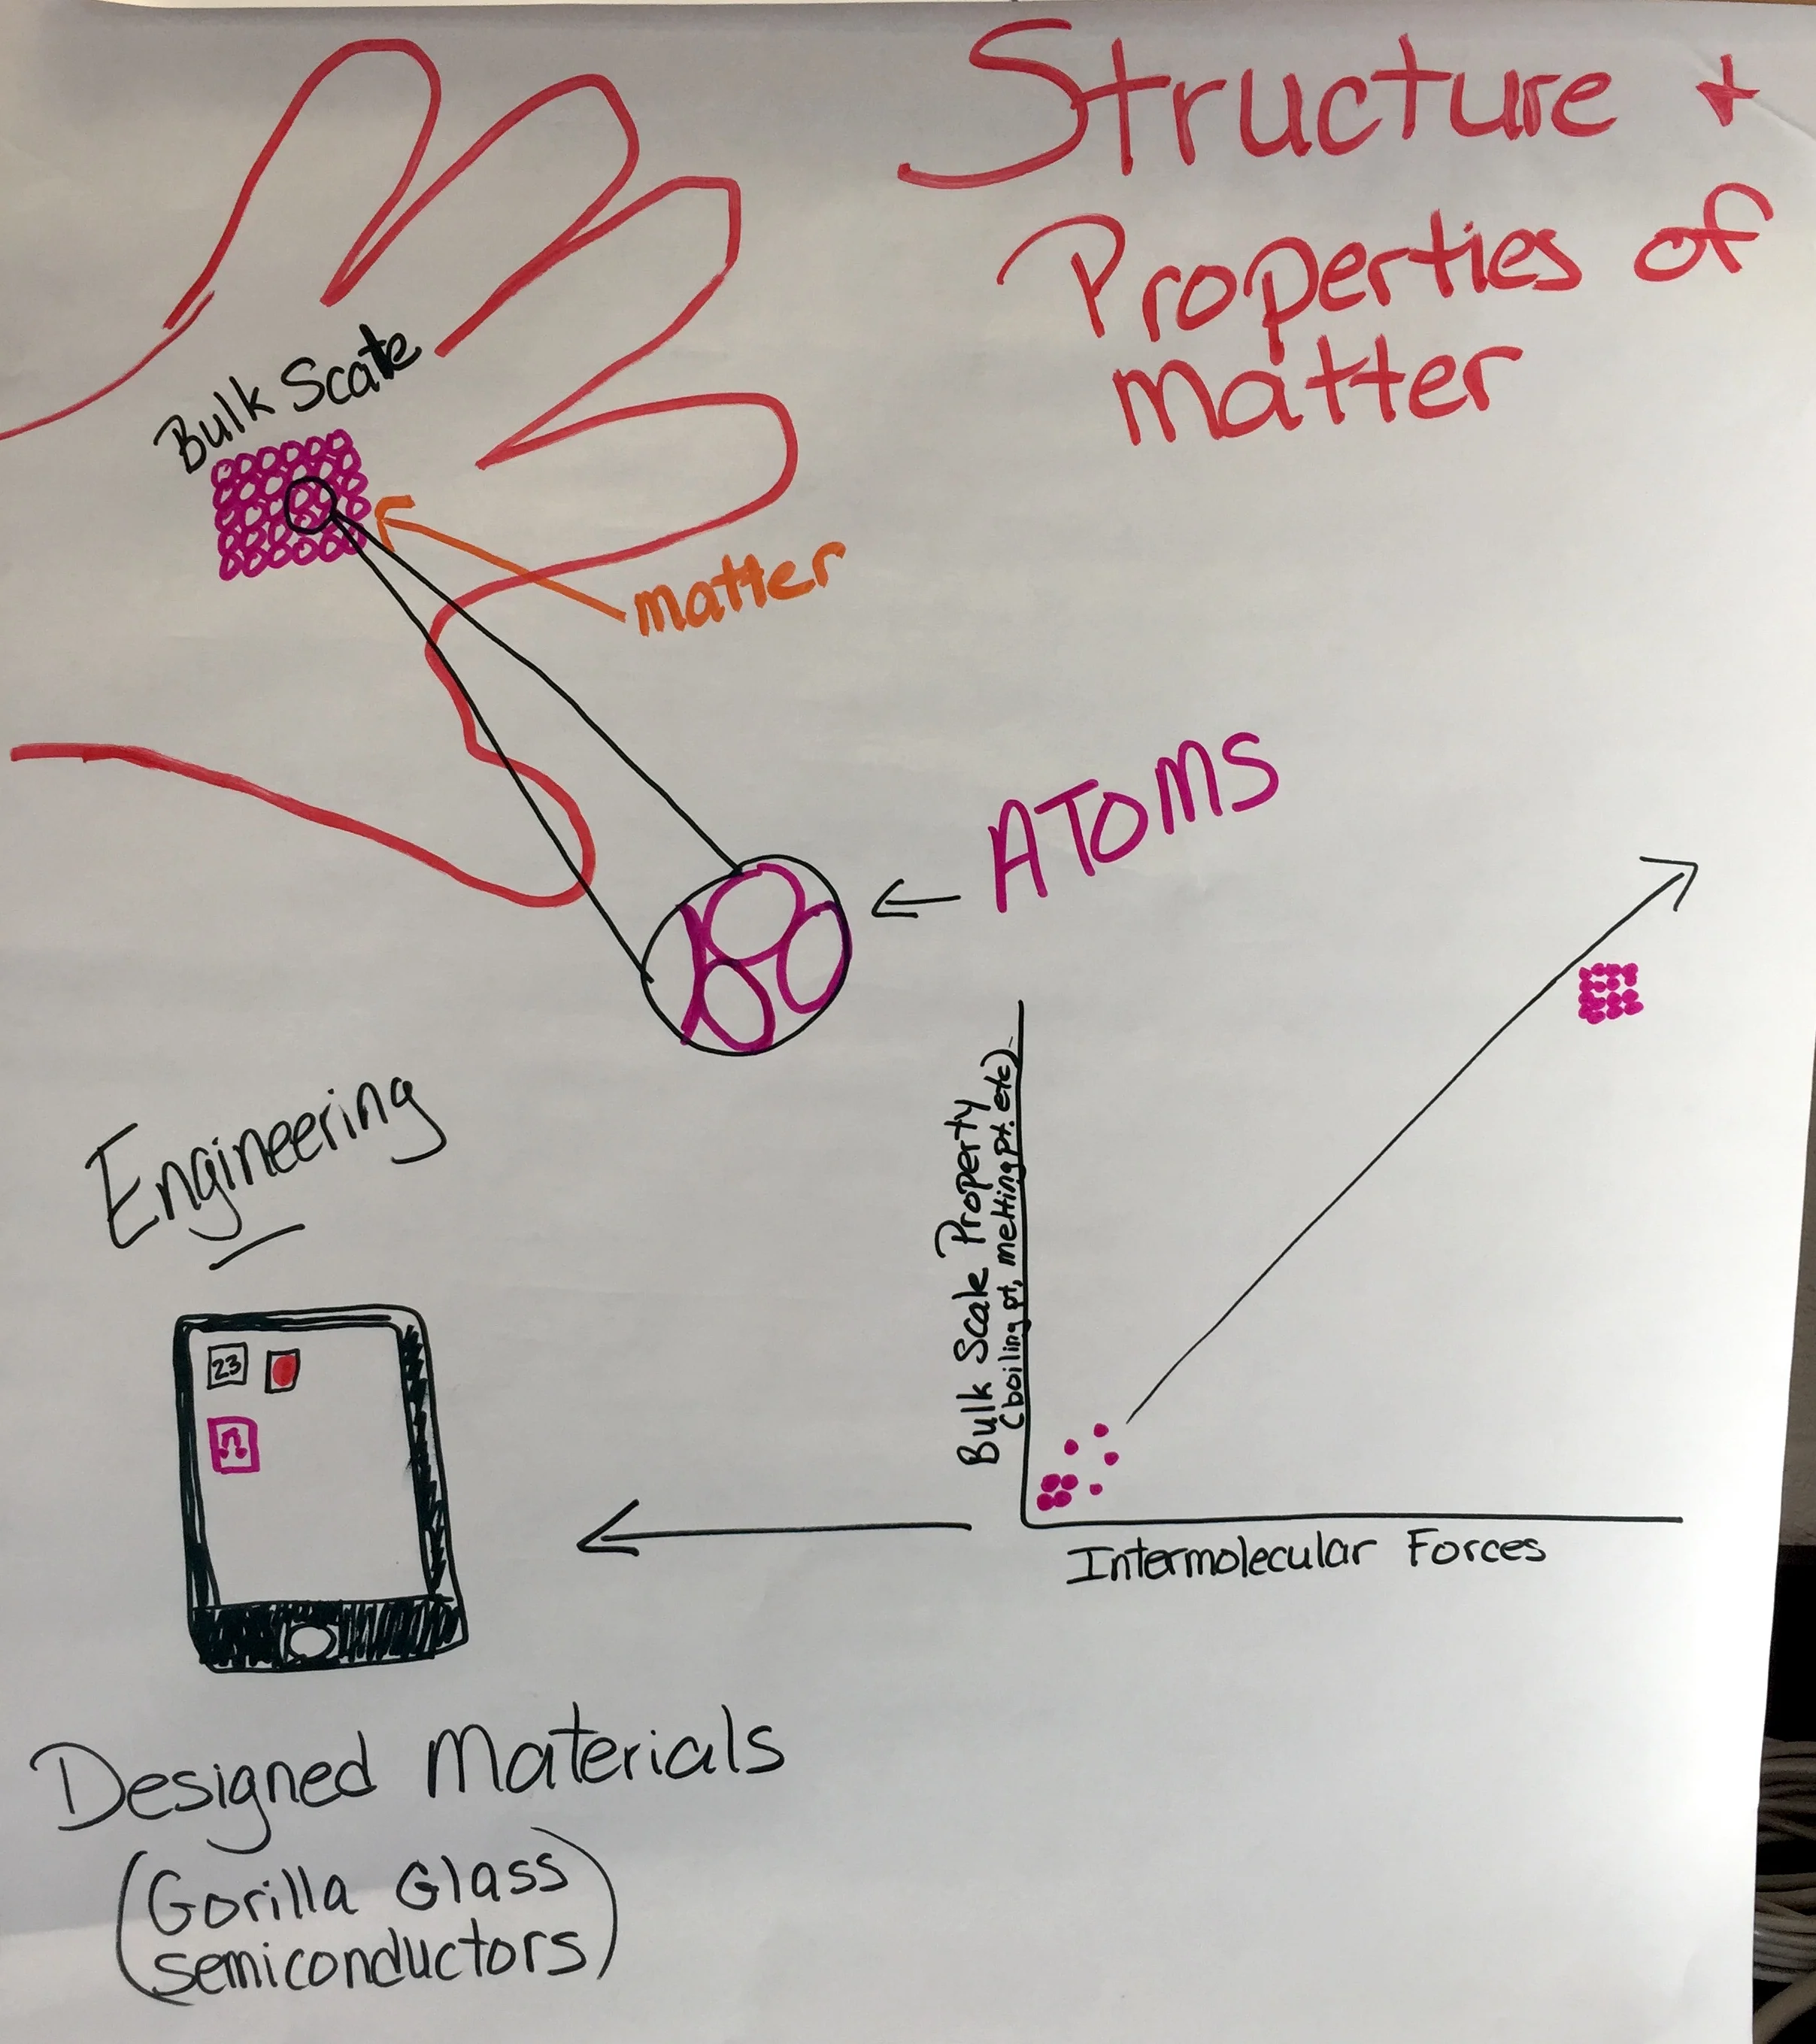 Structure +
Properties of
matter
Bulk Scale
matter
ATOMS
Engineering
23
Bulk Scale Property
(boiling pt, melting pt. etc)
Intermolecular Forces
Designed Materials
(Gorilla Glass
semiconductors)